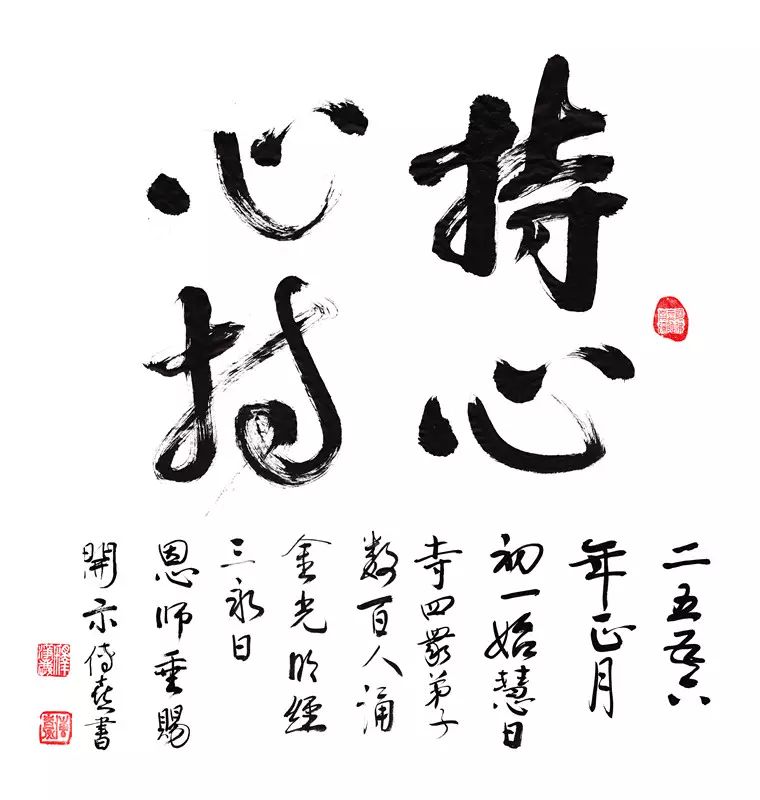 持心
心持
二五五六
年正月
初一始慧日
寺四眾弟子
数百人誦
金光明經
三永日
恩师垂賜
開示傳喜書